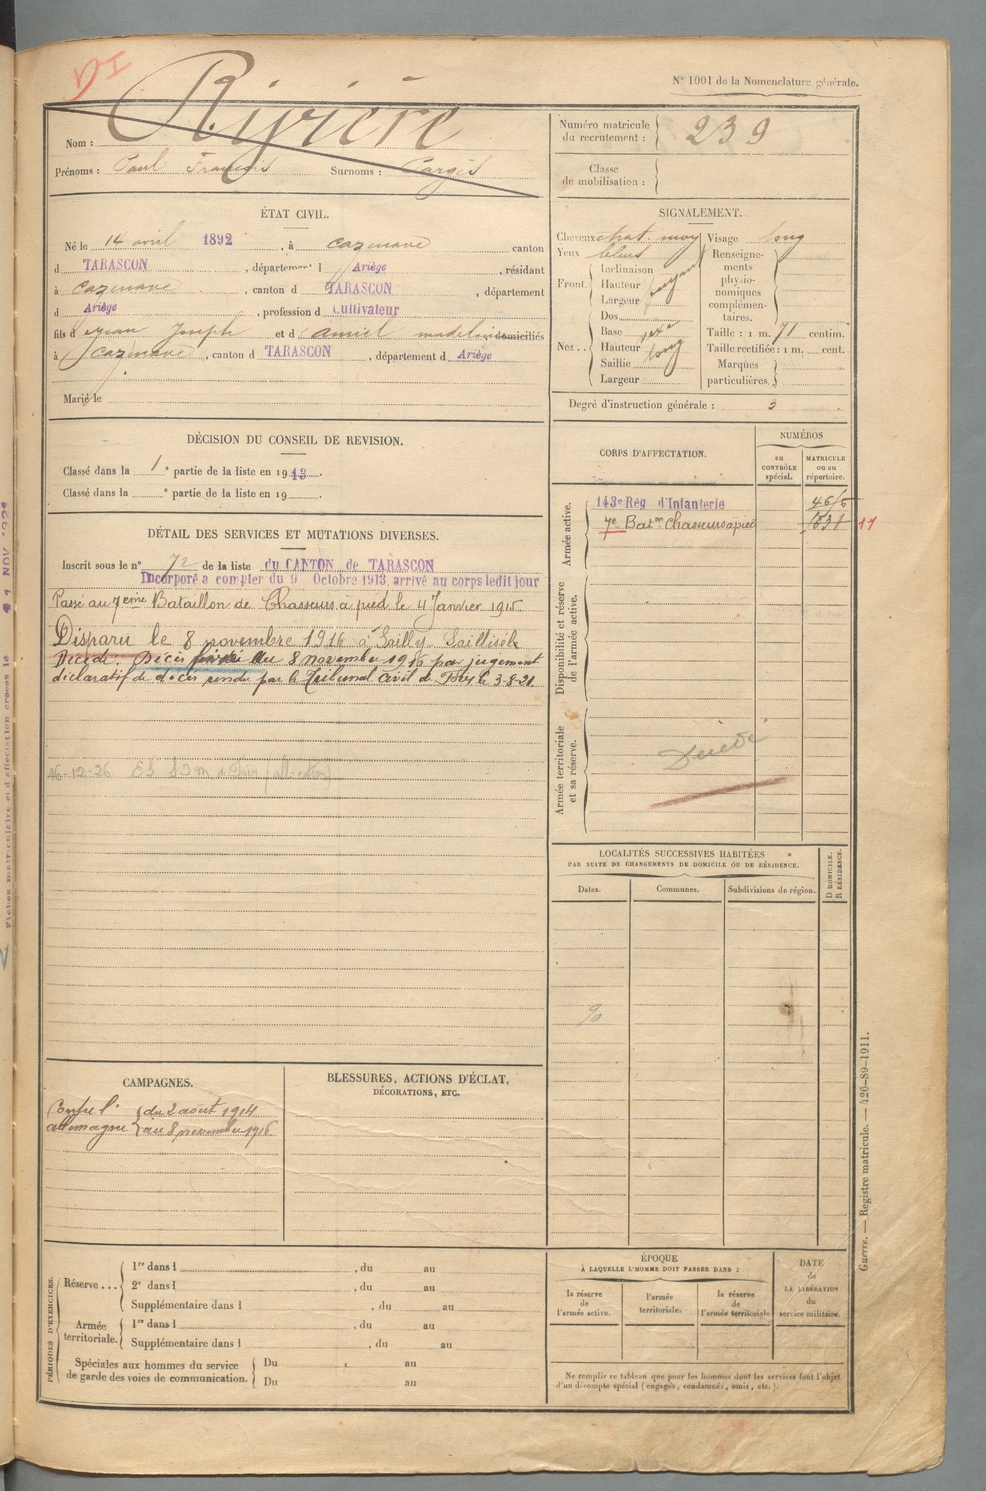 DI
N° 1001 de la Nomenclature générale.
Nom : Rivière
Prénoms : Paul François Surnoms : Cargès
Numéro matricule du recrutement : 239
Classe de mobilisation :
ÉTAT CIVIL.
Né le 14 avril 1892, à Cazenave canton
d TARASCON, département d Ariège, résidant
à Cazenave, canton d TARASCON, département
d Ariège, profession d Cultivateur
fils d Jean Joseph et d Amiel Madeleine domiciliés
à Cazenave, canton d TARASCON, département d Ariège
Marié le
SIGNALEMENT.
Cheveux chat. moy
Yeux bleus
Front.
Inclinaison
Hauteur moyen
Largeur
Nez..
Dos
Base
Hauteur long
Saillie
Largeur
Visage long
Renseignements physionomiques complémentaires.
Taille : 1 m. 71 centim.
Taille rectifiée : 1 m. cent.
Marques particulières.
Degré d'instruction générale : 3
DÉCISION DU CONSEIL DE REVISION.
Classé dans la 1e partie de la liste en 1913.
Classé dans la e partie de la liste en 19
CORPS D'AFFECTATION.
NUMÉROS
au CONTRÔLE spécial.
MATRICULE ou au répertoire.
Armée active.
143e Rég d'Infanterie
7e Baton Chasseurs à pied
11
Disponibilité et réserve de l'armée active.
Armée territoriale et sa réserve.
Décédé
DÉTAIL DES SERVICES ET MUTATIONS DIVERSES.
Inscrit sous le n° 72 de la liste du CANTON de TARASCON
Incorporé à compter du 9 Octobre 1913, arrivé au corps ledit jour
Passé au 7eme Bataillon de Chasseurs à pied le 4 Janvier 1915.
Disparu le 8 novembre 1916 à Sailly-Saillisel
Décédé. Décès fixé au 8 novembre 1916 par jugement
déclaratif de décès rendu par le Tribunal Civil de Foix le 3-8-21.
16-12-26
LOCALITÉS SUCCESSIVES HABITÉES
PAR SUITE DE CHANGEMENTS DE DOMICILE OU DE RÉSIDENCE.
Dates.
Communes.
Subdivisions de région.
D DOMICILE.
R RÉSIDENCE.
CAMPAGNES.
Contre l'Allemagne
du 2 août 1914
au 8 novembre 1916
BLESSURES, ACTIONS D'ÉCLAT,
DÉCORATIONS, ETC.
PÉRIODES D'EXERCICES.
Réserve...
1re dans l , du au
2e dans l , du au
Supplémentaire dans l , du au
Armée territoriale.
1re dans l , du au
Supplémentaire dans l , du au
Spéciales aux hommes du service de garde des voies de communication.
Du au
Du au
ÉPOQUE
À LAQUELLE L'HOMME DOIT PASSER DANS :
la réserve de l'armée active.
l'armée territoriale.
la réserve de l'armée territoriale
DATE de LA LIBÉRATION du service militaire.
Ne remplir ce tableau que pour les hommes dont les services font l'objet
d'un décompte spécial (engagés, condamnés, omis, etc.).
Guerre. — Registre matricule. — 426-89-1911.